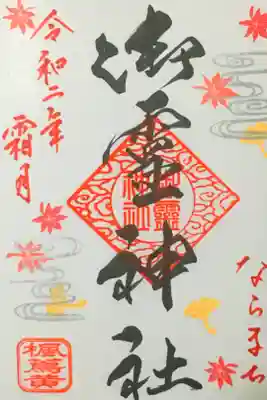 ならまち
御霊神社
御靈
神社
令和二年
霜月
楓蔦黄